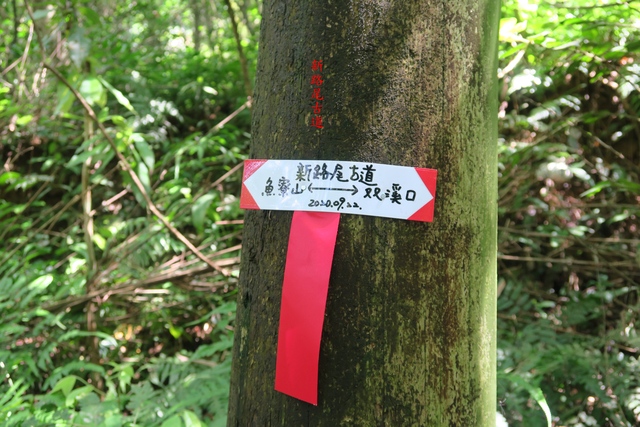 新路尾古道
新路尾古道
魚寮山⟷双溪口
2020.09.22.